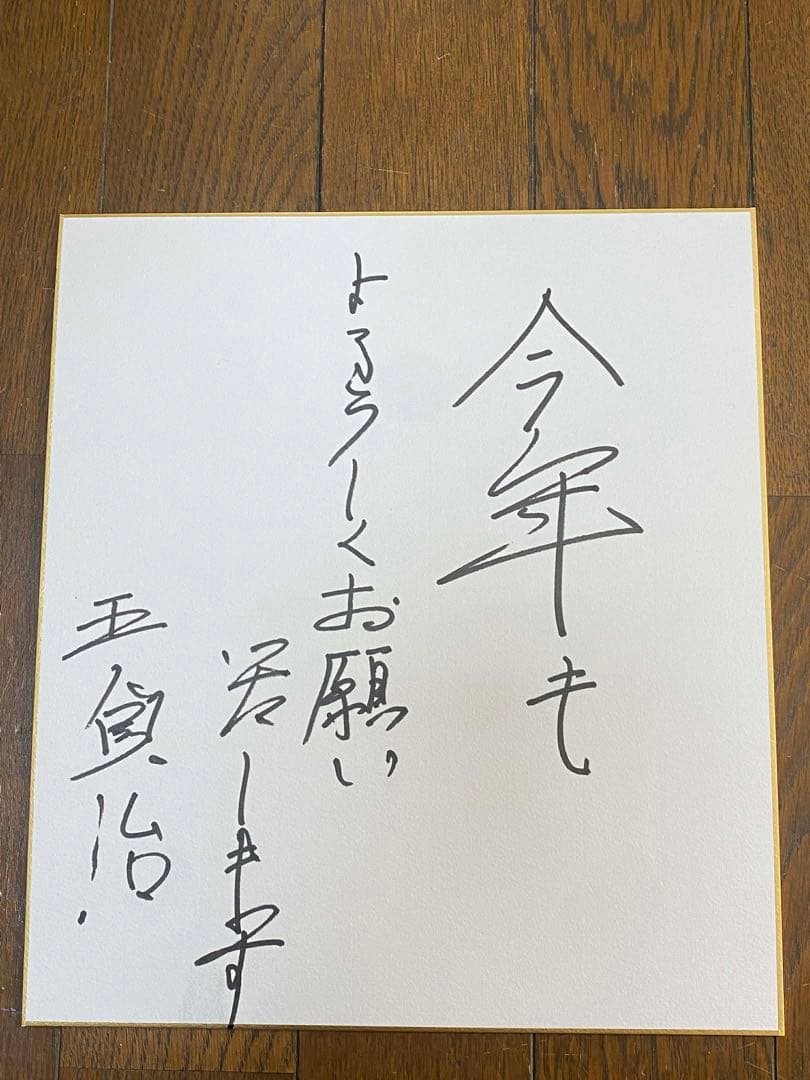 今年も
よろしくお願い
します
王貞治